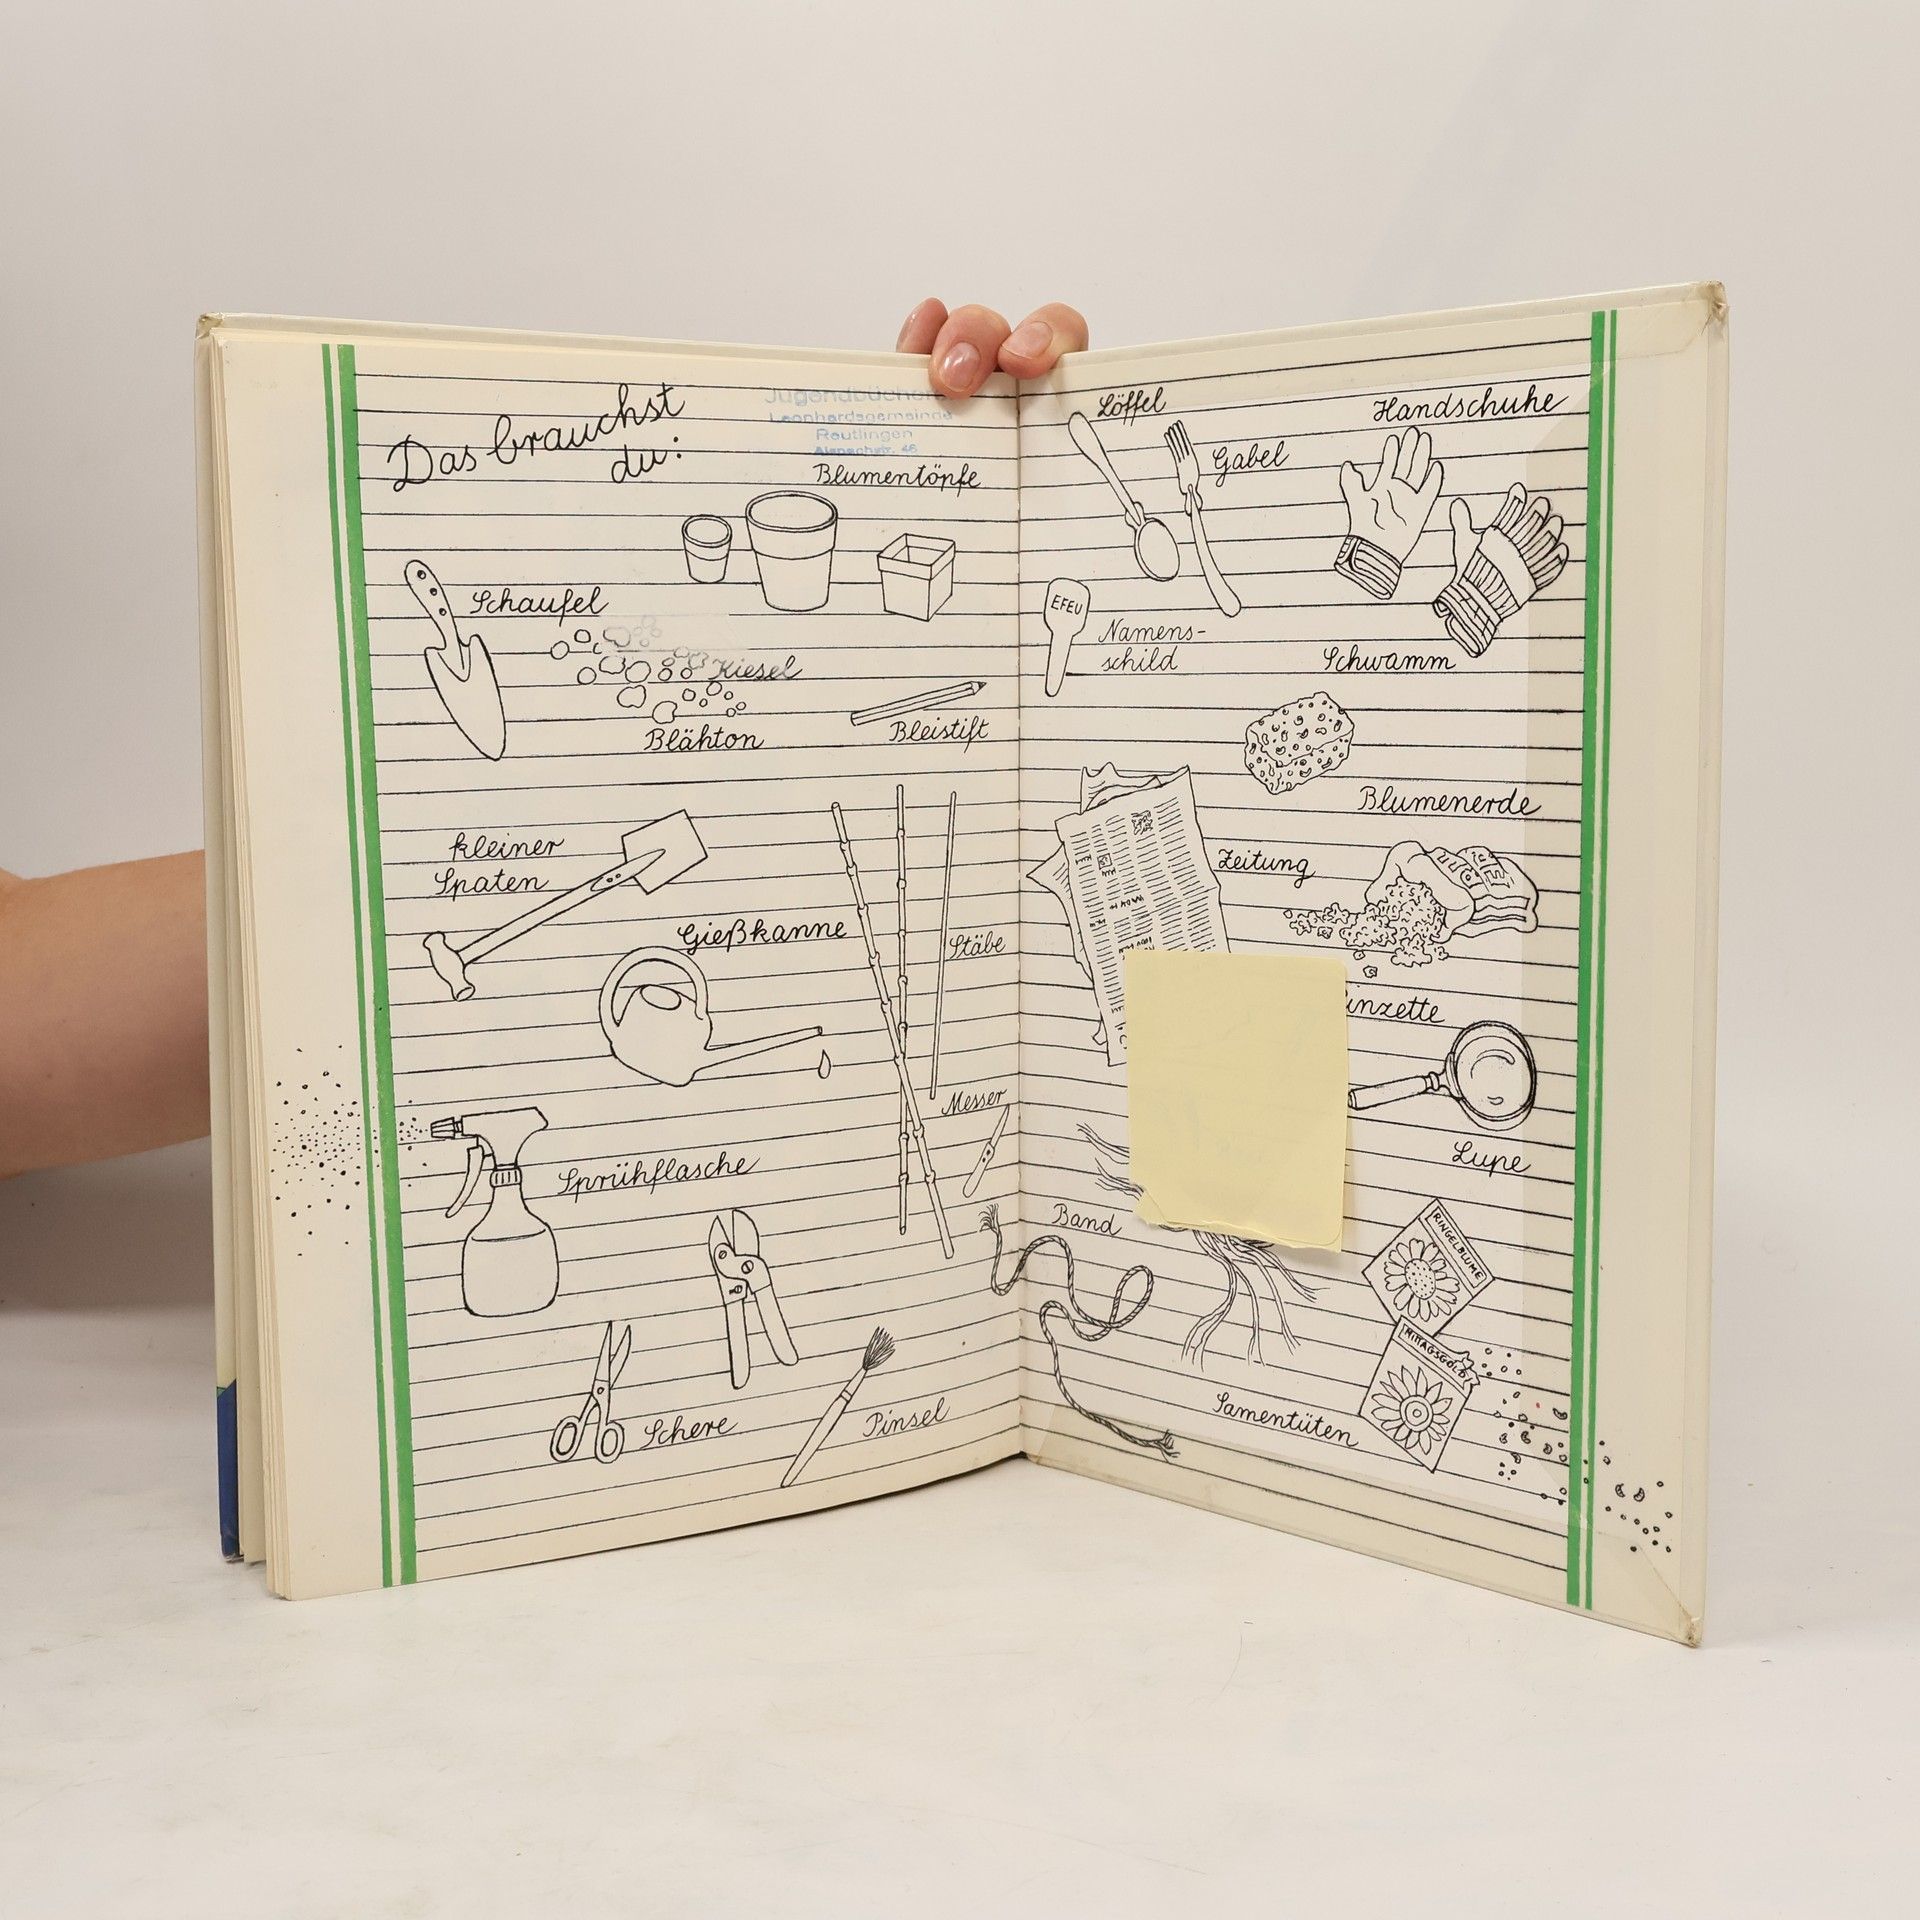 Das brauchst
du:
Jugendbücherei
Leonhardsgemeinde
Reutlingen
Blumentöpfe
Schaufel
Kiesel
Blähton
Bleistift
kleiner
Spaten
Gießkanne
Stäbe
Messer
Sprühflasche
Schere
Pinsel
Löffel
Gabel
Handschuhe
EFEU
Namens-
schild
Schwamm
Blumenerde
Zeitung
inzette
Lupe
Band
RINGELBLUME
MITTAGSGOLD
Samentüten